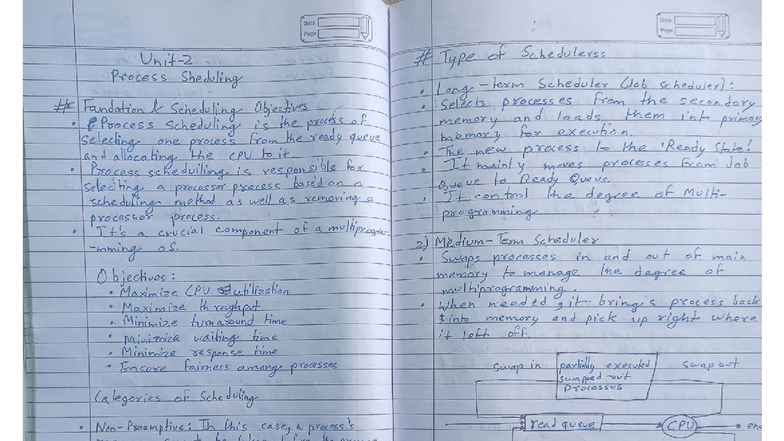 Date
Page
Unit-2
Process Sheduling
# Fandation & Scheduling Objectives
• Process Scheduling is the process of
selecting one process from the ready queue
and allocating the CPU to it
• Process scheduiling is responsible for
selecting a processor process based on a
scheduling method as well as removing a
processor process.
• It's a crucial component of a multiprogra
-mming os.
Objectives :
• Maximize CPU utilization
• Maximize throughput
• Minimize turnaround time
• Minimize waiting time
• Minimize response time
• Ensure fairness among processes
Categories of Scheduling
• Non-Preemptive: In this case, a process's
Date
Page
# Type of Schedulers:
• Long-term Scheduler (Job scheduler):
• Selects processes from the secondary
memory and loads them into primary
memory for execution.
• The new process to the 'Ready State'
• It mainly moves processes from Job
Queue to Ready Queue.
• It control the degree of Multi-
programming
2) Medium-Term Scheduler
• Swaps processes in and out of main
memory to manage the degree of
multiprogramming.
• When needed, it bring's process back
into memory and pick up right where
it left off.
swap in
partially executed
swapped-out
processes
swap out
read queue
CPU